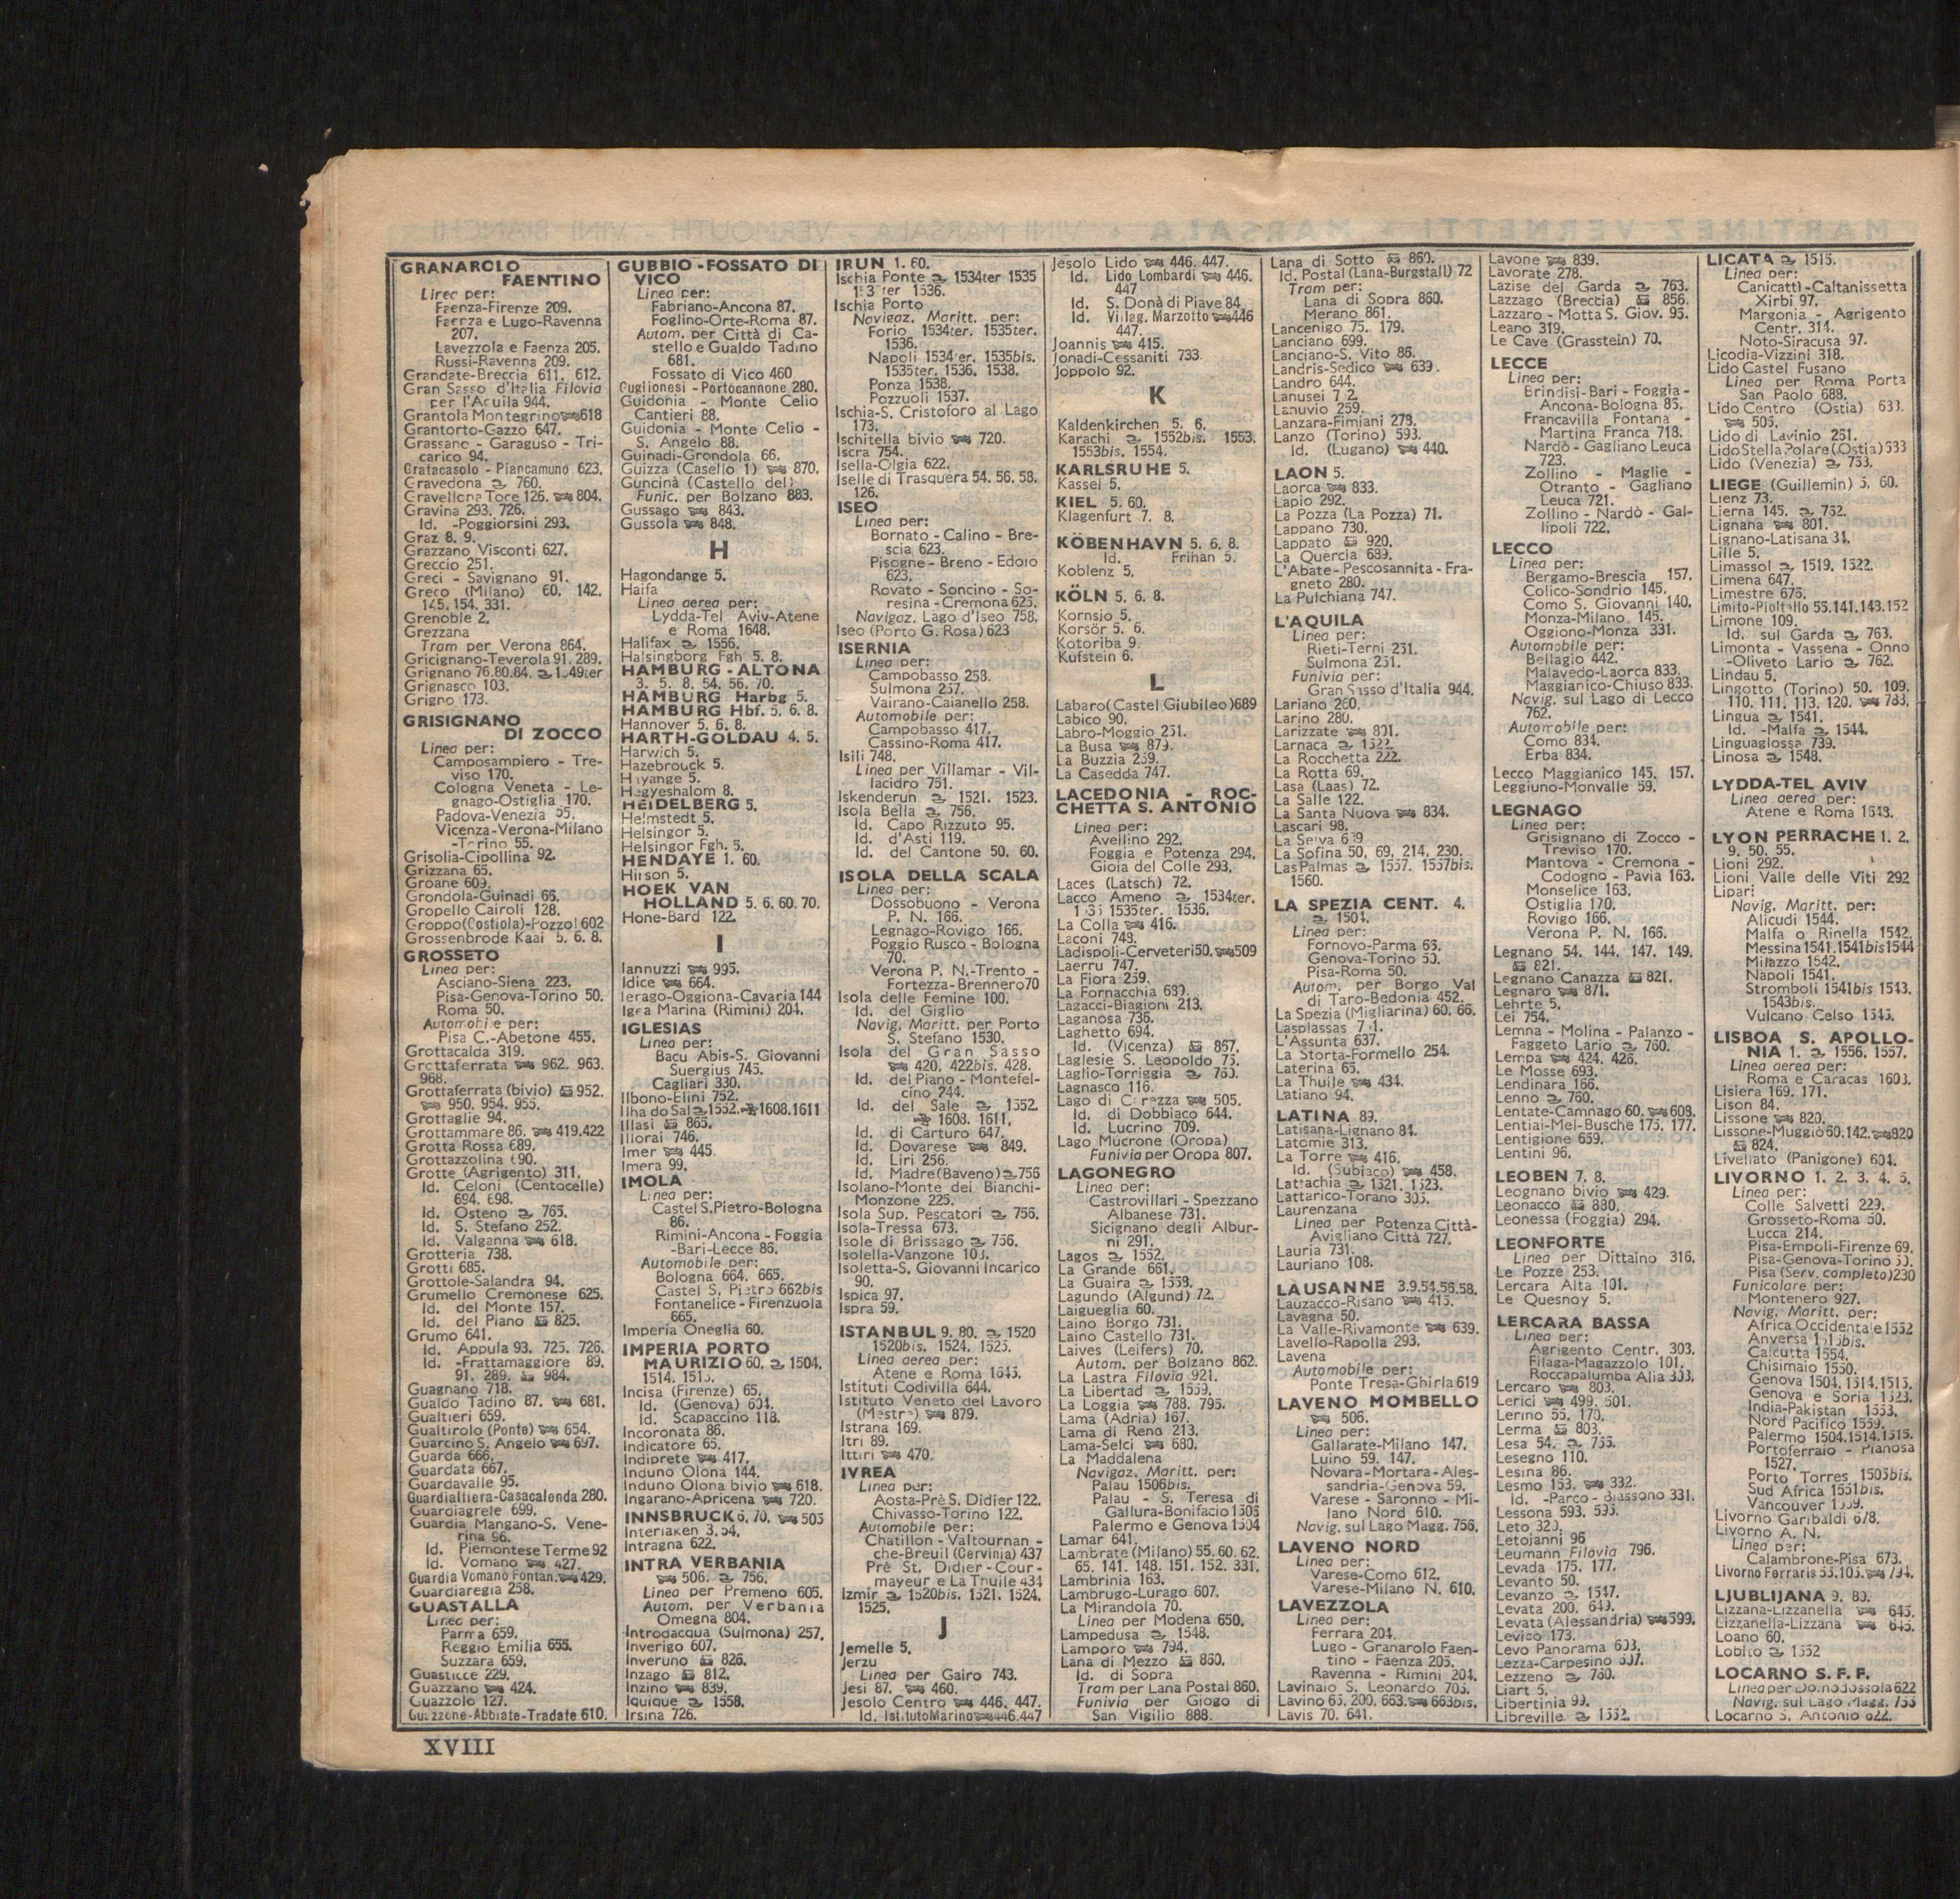 GRANAROLO
FAENTINO
Linea per:
Faenza-Firenze 209.
Faenza e Lugo-Ravenna
207.
Lavezzola e Faenza 205.
Russi-Ravenna 209.
Grandate-Breccia 611. 612.
Gran Sasso d'Italia Filovia
per l'Aquila 944.
Grantola Montegrino 618
Grantorto-Gazzo 647.
Grassano - Garaguso - Tri-
carico 94.
Gratacasolo - Piancamuno 623.
Gravedona 760.
Gravellona Toce 126. 804.
Gravina 293. 726.
Id. -Poggiorsini 293.
Graz 8. 9.
Grazzano Visconti 627.
Greccio 251.
Greci - Savignano 91.
Greco (Milano) 60. 142.
145. 154. 331.
Grenoble 2.
Grezzana
Tram per Verona 864.
Gricignano-Teverola 91. 289.
Grignano 76.80.84.
Grignasco 103.
Grigno 173.
GRISIGNANO
DI ZOCCO
Linea per:
Camposampiero - Tre-
viso 170.
Cologna Veneta - Le-
gnago-Ostiglia 170.
Padova-Venezia 55.
Vicenza-Verona-Milano
-Torino 55.
Grisolia-Cipollina 92.
Grizzana 65.
Groane 609.
Grondola-Guinadi 66.
Gropello Cairoli 128.
Groppo(Costiola)-Pozzol 602
Grossenbrode Kaai 5. 6. 8.
GROSSETO
Linea per:
Asciano-Siena 223.
Pisa-Genova-Torino 50.
Roma 50.
Automobile per:
Pisa C.-Abetone 455.
Grottacalda 319.
Grottaferrata 962. 963.
968.
Grottaferrata (bivio) 952.
950. 954. 955.
Grottaglie 94.
Grottammare 86. 419.422
Grotta Rossa 689.
Grottazzolina 690.
Grotte (Agrigento) 311.
Id. Celoni (Centocelle)
694. 698.
Id. Osteno 765.
Id. S. Stefano 252.
Id. Valganna 618.
Grotteria 738.
Grotti 685.
Grottole-Salandra 94.
Grumello Cremonese 625.
Id. del Monte 157.
Id. del Piano 825.
Grumo 641.
Id. Appula 93. 725. 726.
Id. -Frattamaggiore 89.
91. 289. 984.
Guagnano 718.
Gualdo Tadino 87. 681.
Gualtieri 659.
Gualtirolo (Ponte) 654.
Guarcino S. Angelo 697.
Guarda 666.
Guardata 667.
Guardavalle 95.
Guardialfiera-Casacalenda 280.
Guardiagrele 699.
Guardia Mangano-S. Vene-
rina 96.
Id. Piemontese Terme 92
Id. Vomano 427.
Guardia Vomano Fontan. 429.
Guardiaregia 258.
GUASTALLA
Linea per:
Parma 659.
Reggio Emilia 655.
Suzzara 659.
Guasticce 229.
Guazzano 424.
Guazzolo 127.
Guazzone-Abbiate-Tradate 610.
GUBBIO -FOSSATO DI
VICO
Linea per:
Fabriano-Ancona 87.
Foglino-Orte-Roma 87.
Autom. per Città di Ca-
stello e Gualdo Tadino
681.
Fossato di Vico 460
Guglionesi - Portocannone 280.
Guidonia - Monte Celio
Cantieri 88.
Guidonia - Monte Celio -
S. Angelo 88.
Guinadi-Grondola 66.
Guizza (Casello 1) 870.
Guncinà (Castello del)
Funic. per Bolzano 883.
Gussago 843.
Gussola 848.
H
Hagondange 5.
Haifa
Linea aerea per:
Lydda-Tel Aviv-Atene
e Roma 1648.
Halifax 1556.
Halsingborg Fgh 5. 8.
HAMBURG - ALTONA
3. 5. 8. 54. 56. 70.
HAMBURG Harbg 5.
HAMBURG Hbf. 5. 6. 8.
Hannover 5. 6. 8.
HARTH-GOLDAU 4. 5.
Harwich 5.
Hazebrouck 5.
Hayange 5.
Hegyeshalom 8.
HEIDELBERG 5.
Helmstedt 5.
Helsingor 5.
Helsingor Fgh. 5.
HENDAYE 1. 60.
Hirson 5.
HOEK VAN
HOLLAND 5. 6. 60. 70.
Hone-Bard 122.
I
Iannuzzi 995.
Idice 664.
Ierago-Oggiona-Cavaria 144
Igea Marina (Rimini) 204.
IGLESIAS
Linea per:
Bacu Abis-S. Giovanni
Suergius 745.
Cagliari 330.
Ilbono-Elini 752.
Ilha do Sal 1552. 1608.1611
Illasi 865.
Illorai 746.
Imer 445.
Imera 99.
IMOLA
Linea per:
Castel S.Pietro-Bologna
86.
Rimini-Ancona - Foggia
-Bari-Lecce 86.
Automobile per:
Bologna 664. 665.
Castel S. Pietro 662bis
Fontanelice - Firenzuola
665.
Imperia Oneglia 60.
IMPERIA PORTO
MAURIZIO 60. 1504.
1514. 1515.
Incisa (Firenze) 65.
Id. (Genova) 604.
Id. Scapaccino 118.
Incoronata 86.
Indicatore 65.
Indiprete 417.
Induno Olona 144.
Induno Olona bivio 618.
Ingarano-Apricena 720.
INNSBRUCK 6. 70. 505
Interlaken 3. 54.
Intragna 622.
INTRA VERBANIA
506. 756.
Linea per Premeno 605.
Autom. per Verbania
Omegna 804.
Introdacqua (Sulmona) 257.
Inverigo 607.
Inveruno 826.
Inzago 812.
Inzino 839.
Iquique 1558.
Irsina 726.
IRUN 1. 60.
Ischia Ponte 1534ter 1535
1536.
Ischia Porto
Navigaz. Maritt. per:
Forio 1534ter. 1535ter.
1536.
Napoli 1534ter. 1535bis.
1535ter. 1536. 1538.
Ponza 1538.
Pozzuoli 1537.
Ischia-S. Cristoforo al Lago
173.
Ischitella bivio 720.
Iscra 754.
Isella-Olgia 622.
Iselle di Trasquera 54. 56. 58.
126.
ISEO
Linea per:
Bornato - Calino - Bre-
scia 623.
Pisogne - Breno - Edolo
623.
Rovato - Soncino - So-
resina - Cremona 625.
Navigaz. Lago d'Iseo 758.
Iseo (Porto G. Rosa) 623
ISERNIA
Linea per:
Campobasso 258.
Sulmona 257.
Vairano-Caianello 258.
Automobile per:
Campobasso 417.
Cassino-Roma 417.
Isili 748.
Linea per Villamar - Vil-
lacidro 751.
Iskenderun 1521. 1523.
Isola Bella 756.
Id. Capo Rizzuto 95.
Id. d'Asti 119.
Id. del Cantone 50. 60.
ISOLA DELLA SCALA
Linea per:
Dossobuono - Verona
P. N. 166.
Legnago-Rovigo 166.
Poggio Rusco - Bologna
70.
Verona P. N.-Trento -
Fortezza-Brennero70
Isola delle Femine 100.
Id. del Giglio
Navig. Maritt. per Porto
S. Stefano 1530.
Isola del Gran Sasso
420. 422bis. 428.
Id. del Piano - Montefel-
cino 244.
Id. del Sale 1552.
1608. 1611.
Id. di Carturo 647.
Id. Dovarese 849.
Id. Liri 256.
Id. Madre(Baveno) 756
Isolano-Monte dei Bianchi-
Monzone 225.
Isola Sup. Pescatori 756.
Isola-Tressa 673.
Isole di Brissago 756.
Isolella-Vanzone 103.
Isoletta-S. Giovanni Incarico
90.
Ispica 97.
Ispra 59.
ISTANBUL 9. 80. 1520
1520bis. 1524. 1525.
Linea aerea per:
Atene e Roma 1645.
Istituti Codivilla 644.
Istituto Veneto del Lavoro
(Mestre) 879.
Istrana 169.
Itri 89.
Ittiri 470.
IVREA
Linea per:
Aosta-Prè S. Didier 122.
Chivasso-Torino 122.
Automobile per:
Chatillon - Valtournan -
che-Breuil (Cervinia) 437
Prè St. Didier - Cour -
mayeur e La Thuile 434
Izmir 1520bis. 1521. 1524.
1525.
J
Jemelle 5.
Jerzu
Linea per Gairo 743.
Jesi 87. 460.
Jesolo Centro 446. 447.
Id. IstitutoMarino 446.447
Jesolo Lido 446. 447.
Id. Lido Lombardi 446.
447
Id. S. Donà di Piave 84.
Id. Villag. Marzotto 446
447.
Joannis 415.
Jonadi-Cessaniti 733.
Joppolo 92.
K
Kaldenkirchen 5. 6.
Karachi 1552bis. 1553.
1553bis. 1554.
KARLSRUHE 5.
Kassel 5.
KIEL 5. 60.
Klagenfurt 7. 8.
KÖBENHAVN 5. 6. 8.
Id. Frihan 5.
Koblenz 5.
KÖLN 5. 6. 8.
Kornsjo 5.
Korsör 5. 6.
Kotoriba 9.
Kufstein 6.
L
Labaro(Castel Giubileo)689
Labico 90.
Labro-Moggio 251.
La Busa 879.
La Buzzia 259.
La Casedda 747.
LACEDONIA - ROC-
CHETTA S. ANTONIO
Linea per:
Avellino 292.
Foggia e Potenza 294.
Gioia del Colle 293.
Laces (Latsch) 72.
Lacco Ameno 1534ter.
1535 1535ter. 1536.
La Colla 416.
Laconi 748.
Ladispoli-Cerveteri50. 509
Laerru 747.
La Fiora 259.
La Fornacchia 689.
Lagacci-Biagioni 213.
Laganosa 736.
Laghetto 694.
Id. (Vicenza) 867.
Laglesie S. Leopoldo 75.
Laglio-Torriggia 760.
Lagnasco 116.
Lago di Carezza 505.
Id. di Dobbiaco 644.
Id. Lucrino 709.
Lago Mucrone (Oropa)
Funivia per Oropa 807.
LAGONEGRO
Linea per:
Castrovillari - Spezzano
Albanese 731.
Sicignano degli Albur-
ni 291.
Lagos 1552.
La Grande 661.
La Guaira 1558.
Lagundo (Algund) 72.
Laigueglia 60.
Laino Borgo 731.
Laino Castello 731.
Laives (Leifers) 70.
Autom. per Bolzano 862.
La Lastra Filovia 921.
La Libertad 1559.
La Loggia 788. 795.
Lama (Adria) 167.
Lama di Reno 213.
Lama-Selci 680.
La Maddalena
Navigaz. Maritt. per:
Palau 1506bis.
Palau - S. Teresa di
Gallura-Bonifacio 1506
Palermo e Genova 1504
Lamar 641.
Lambrate (Milano) 55. 60. 62.
65. 141. 148. 151. 152. 331.
Lambrinia 163.
Lambrugo-Lurago 607.
La Mirandola 70.
Linea per Modena 650.
Lampedusa 1548.
Lamporo 794.
Lana di Mezzo 860.
Id. di Sopra
Tram per Lana Postal 860.
Funivia per Giogo di
San Vigilio 888.
Lana di Sotto 860.
Id. Postal (Lana-Burgstall) 72
Tram per:
Lana di Sopra 860.
Merano 861.
Lancenigo 75. 179.
Lanciano 699.
Lanciano-S. Vito 86.
Landris-Sedico 639.
Landro 644.
Lanusei 752.
Lanuvio 259.
Lanzara-Fimiani 278.
Lanzo (Torino) 593.
Id. (Lugano) 440.
LAON 5.
Laorca 833.
Lapio 292.
La Pozza (La Pozza) 71.
Lappano 730.
Lappato 920.
La Quercia 689.
L'Abate - Pescosannita - Fra-
gneto 280.
La Pulchiana 747.
L'AQUILA
Linea per:
Rieti-Terni 251.
Sulmona 251.
Funivia per:
Gran Sasso d'Italia 944.
Lariano 260.
Larino 280.
Larizzate 801.
Larnaca 1522.
La Rocchetta 222.
La Rotta 69.
Lasa (Laas) 72.
La Salle 122.
La Santa Nuova 834.
Lascari 98.
La Selva 689
La Sofina 50. 69. 214. 230.
LasPalmas 1557. 1557bis.
1560.
LA SPEZIA CENT. 4.
1504.
Linea per:
Fornovo-Parma 66.
Genova-Torino 50.
Pisa-Roma 50.
Autom. per Borgo Val
di Taro-Bedonia 452.
La Spezia (Migliarina) 60. 66.
Lasplassas 751.
L'Assunta 637.
La Storta-Formello 254.
Laterina 65.
La Thuile 434.
Latiano 94.
LATINA 89.
Latisana-Lignano 84.
Latomie 313.
La Torre 416.
Id. (Subiaco) 458.
Lattachia 1521. 1523.
Lattarico-Torano 305.
Laurenzana
Linea per Potenza Città-
Avigliano Città 727.
Lauria 731.
Lauriano 108.
LAUSANNE 3.9.54.56.58.
Lauzacco-Risano 415.
Lavagna 50.
La Valle-Rivamonte 639.
Lavello-Rapolla 293.
Lavena
Automobile per:
Ponte Tresa-Ghirla 619
LAVENO MOMBELLO
506.
Linea per:
Gallarate-Milano 147.
Luino 59. 147.
Novara-Mortara-Ales-
sandria-Genova 59.
Varese - Saronno - Mi-
lano Nord 610.
Navig. sul Lago Magg. 756.
LAVENO NORD
Linea per:
Varese-Como 612.
Varese-Milano N. 610.
LAVEZZOLA
Linea per:
Ferrara 204.
Lugo - Granarolo Faen-
tino - Faenza 205.
Ravenna - Rimini 204.
Lavinaio S. Leonardo 705.
Lavino 65. 200. 663. 663bis.
Lavis 70. 641.
Lavone 839.
Lavorate 278.
Lazise del Garda 763.
Lazzago (Breccia) 856.
Lazzaro - Motta S. Giov. 95.
Leano 319.
Le Cave (Grasstein) 70.
LECCE
Linea per:
Brindisi-Bari - Foggia -
Ancona-Bologna 86.
Francavilla Fontana -
Martina Franca 718.
Nardò - Gagliano Leuca
723.
Zollino - Maglie -
Otranto - Gagliano
Leuca 721.
Zollino - Nardò - Gal-
lipoli 722.
LECCO
Linea per:
Bergamo-Brescia 157.
Colico-Sondrio 145.
Como S. Giovanni 140.
Monza-Milano 145.
Oggiono-Monza 331.
Automobile per:
Bellagio 442.
Malavedo-Laorca 833.
Maggianico-Chiuso 833.
Navig. sul Lago di Lecco
762.
Automobile per:
Como 834.
Erba 834.
Lecco Maggianico 145. 157.
Leggiuno-Monvalle 59.
LEGNAGO
Linea per:
Grisignano di Zocco -
Treviso 170.
Mantova - Cremona -
Codogno - Pavia 163.
Monselice 163.
Ostiglia 170.
Rovigo 166.
Verona P. N. 166.
Legnano 54. 144. 147. 149.
821.
Legnano Canazza 821.
Legnaro 871.
Lehrte 5.
Lei 754.
Lemna - Molina - Palanzo -
Faggeto Lario 760.
Lempa 424. 426.
Le Mosse 693.
Lendinara 166.
Lenno 760.
Lentate-Camnago 60. 608.
Lentiai-Mel-Busche 175. 177.
Lentigione 659.
Lentini 96.
LEOBEN 7. 8.
Leognano bivio 429.
Leonacco 880.
Leonessa (Foggia) 294.
LEONFORTE
Linea per Dittaino 316.
Le Pozze 253.
Lercara Alta 101.
Le Quesnoy 5.
LERCARA BASSA
Linea per:
Agrigento Centr. 303.
Filaga-Magazzolo 101.
Roccapalumba Alia 303.
Lercaro 803.
Lerici 499. 501.
Lerino 55. 170.
Lerma 803.
Lesa 54. 756.
Lesegno 110.
Lesina 86.
Lesmo 153. 332.
Id. -Parco - Biassono 331.
Lessona 593. 595.
Leto 320.
Letojanni 96
Leumann Filovia 796.
Levada 175. 177.
Levanto 50.
Levanzo 1547.
Levata 200. 649.
Levata (Alessandria) 599.
Levico 173.
Levo Panorama 603.
Lezza-Carpesino 607.
Lezzeno 760.
Liart 5.
Libertinia 99.
Libreville 1552.
LICATA 1515.
Linea per:
Canicattì-Caltanissetta
Xirbi 97.
Margonia - Agrigento
Centr. 314.
Noto-Siracusa 97.
Licodia-Vizzini 318.
Lido Castel Fusano
Linea per Roma Porta
San Paolo 688.
Lido Centro (Ostia) 688.
505.
Lido di Lavinio 261.
Lido Stella Polare (Ostia)
Lido (Venezia) 753.
LIEGE (Guillemin) 5. 60.
Lienz 73.
Lierna 145. 762.
Lignana 801.
Lignano-Latisana 34.
Lille 5.
Limassol 1519. 1522.
Limena 647.
Limestre 676.
Limito-Pioltello 55.141.148.152
Limone 109.
Id. sul Garda 763.
Limonta - Vassena - Onno
-Oliveto Lario 762.
Lindau 5.
Lingotto (Torino) 50. 109.
110. 111. 113. 120. 783.
Lingua 1541.
Id. -Malfa 1544.
Linguaglossa 739.
Linosa 1548.
LYDDA-TEL AVIV
Linea aerea per:
Atene e Roma 1648.
LYON PERRACHE 1. 2.
9. 50. 55.
Lioni 292.
Lioni Valle delle Viti 292
Lipari
Navig. Maritt. per:
Alicudi 1544.
Malfa o Rinella 1542.
Messina1541.1541bis1544
Milazzo 1542.
Napoli 1541.
Stromboli 1541bis 1543.
1543bis.
Vulcano Celso 1545.
LISBOA S. APOLLO-
NIA 1. 1556. 1557.
Linea aerea per:
Roma e Caracas 1603.
Lisiera 169. 171.
Lison 84.
Lissone 820.
Lissone-Muggiò 60.142. 820
824.
Livellato (Panigone) 604.
LIVORNO 1. 2. 3. 4. 5.
Linea per:
Colle Salvetti 229.
Grosseto-Roma 50.
Lucca 214.
Pisa-Empoli-Firenze 69.
Pisa-Genova-Torino 50.
Pisa (Serv. completo)230
Funicolare per:
Montenero 927.
Navig. Maritt. per:
Africa Occidentale1552
Anversa
Calcutta 1554.
Chisimaio 1550.
Genova 1504.1514.1515.
Genova e Soria 1523.
India-Pakistan 1553.
Nord Pacifico 1559.
Palermo 1504.1514.1515.
Portoferraio - Pianosa
1527.
Porto Torres 1505bis.
Sud Africa 1551bis.
Vancouver 1559.
Livorno Garibaldi 678.
Livorno A. N.
Linea per:
Calambrone-Pisa 673.
Livorno Ferraris 55.105. 794.
LJUBLIJANA 9. 80.
Lizzana-Lizzanella 645.
Lizzanella-Lizzana 645.
Loano 60.
Lobito 1552
LOCARNO S. F. F.
Linea per Domodossola 622
Navig. sul Lago Magg. 756
Locarno S. Antonio 622.
XVIII